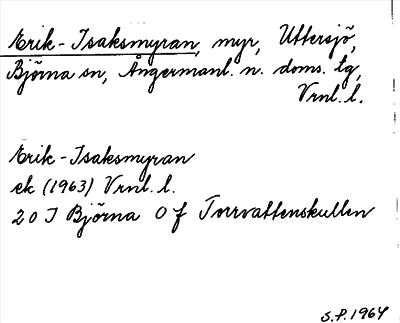 Erik-Isaksmyran, myr, Uttersjö,
Björna sn, Ångermanl. n. doms. tg,
Vrnl. l.
Erik-Isaksmyran
ek (1963) Vrnl. l.
20 I Björna 0 f Torrvattenskullen
S.P. 1964